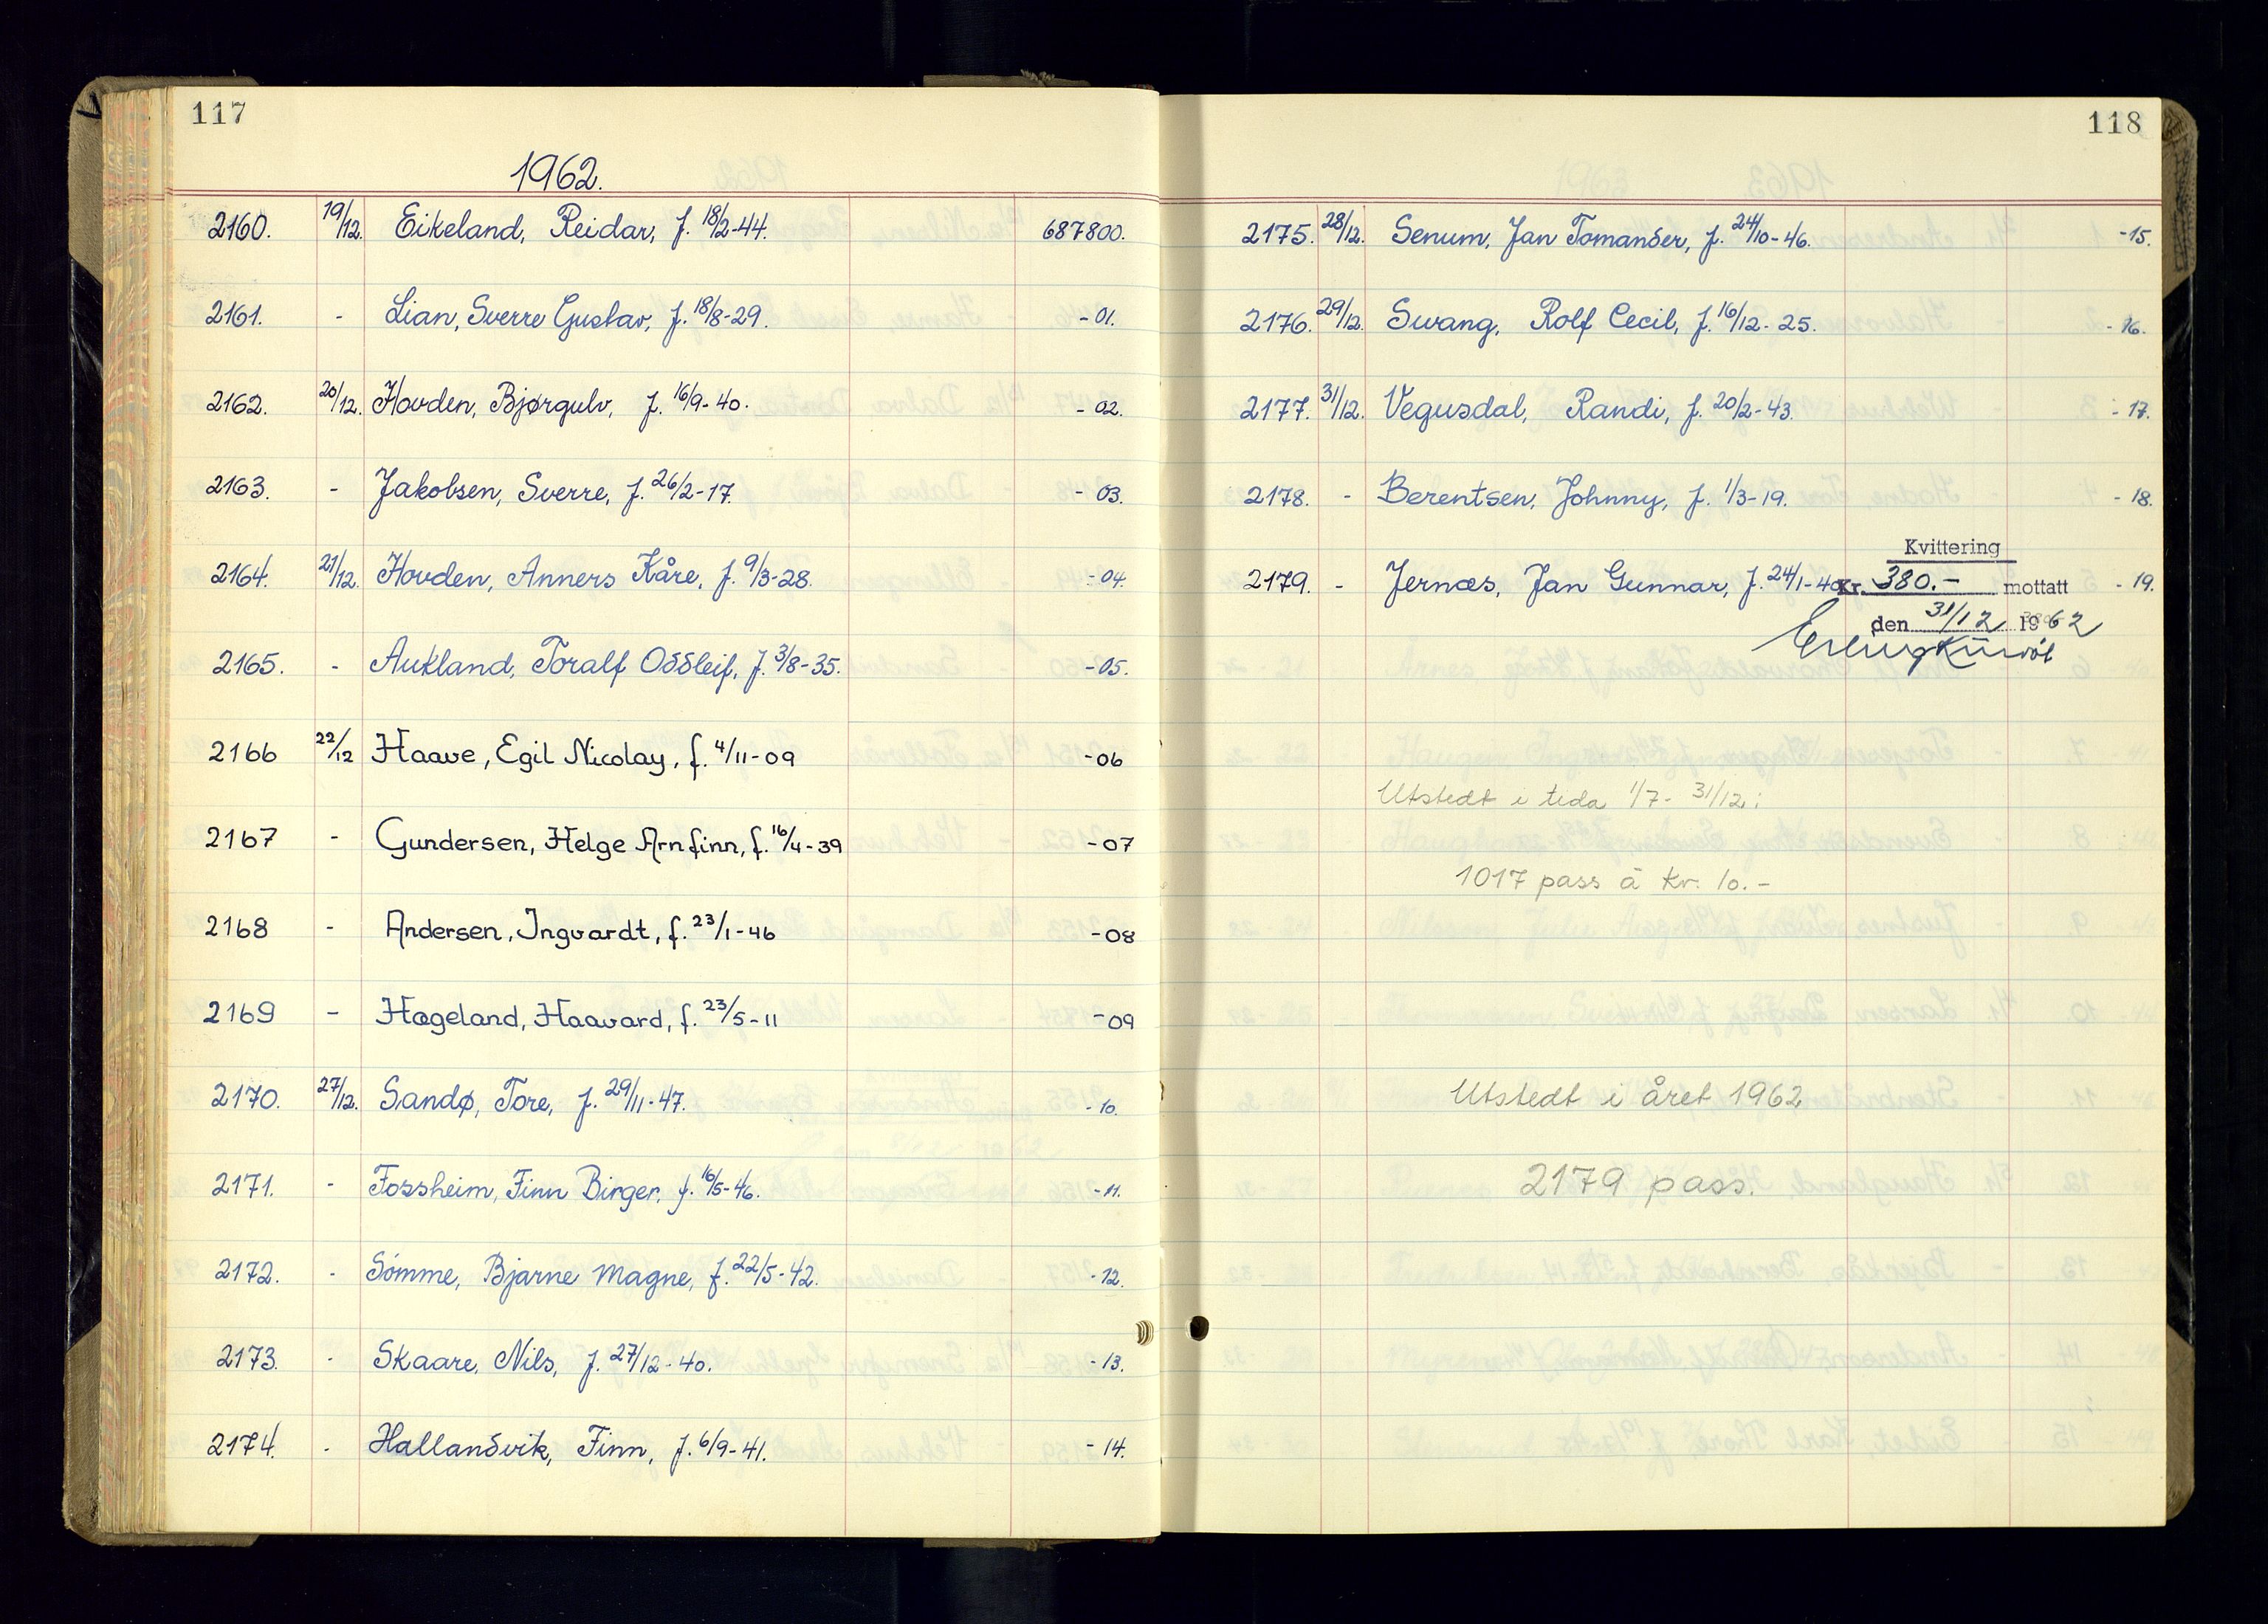 117
1962.
2160. 19/12. Eikeland, Reidar, f. 18/2-44. 687800.
2161. - Lian, Sverre Gustav, f. 18/8-29. -01.
2162. 20/12. Hovden, Bjørgulv, f. 16/9-40. -02.
2163. - Jakobsen, Sverre, f. 26/2-17. -03.
2164. 21/12. Hovden, Anners Kåre, f. 9/3-28. -04.
2165. - Aukland, Toralf Oddleif, f. 3/8-35. -05.
2166 22/12 Haave, Egil Nicolay, f. 4/11-09 -06
2167 - Gundersen, Helge Arnfinn, f. 16/4-39 -07
2168 - Andersen, Ingvardt, f. 23/1-46 -08
2169 - Hageland, Haavard, f. 23/5-11 -09
2170. 27/12. Sandø, Tore, f. 29/11-47. -10.
2171. - Fossheim, Finn Birger, f. 16/5-46. -11.
2172. - Sömme, Bjarne Magne, f. 22/5-42. -12.
2173. - Skaare, Nils, f. 27/12-40. -13.
2174. - Hallandsvik, Finn, f. 6/9-41. -14.
118
2175. 28/12. Senum, Jan Tomander, f. 24/10-46. -15.
2176. 29/12. Swang, Rolf Cecil, f. 16/12-25. -16.
2177. 31/12. Vegusdal, Randi, f. 20/2-43. -17.
2178. - Berentsen, Johnny, f. 1/3-19. -18.
Kvittering
2179. - Jernæs, Jan Gunnar, f. 24/1-40 Kr. 380.- mottatt -19.
den 31/12 1962
Utstedt i tida 1/7- 31/12:
1017 pass à kr. 10.-
Utstedt i året 1962
2179 pass.